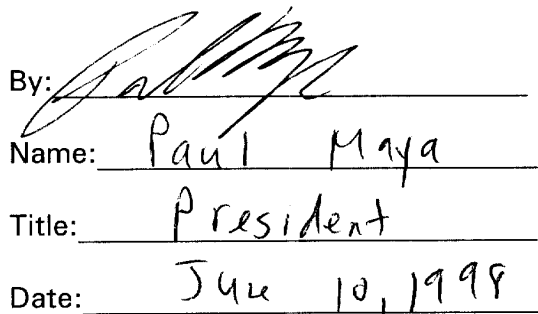 By:
Name: Paul Maya
Title: President
Date: June 10, 1998